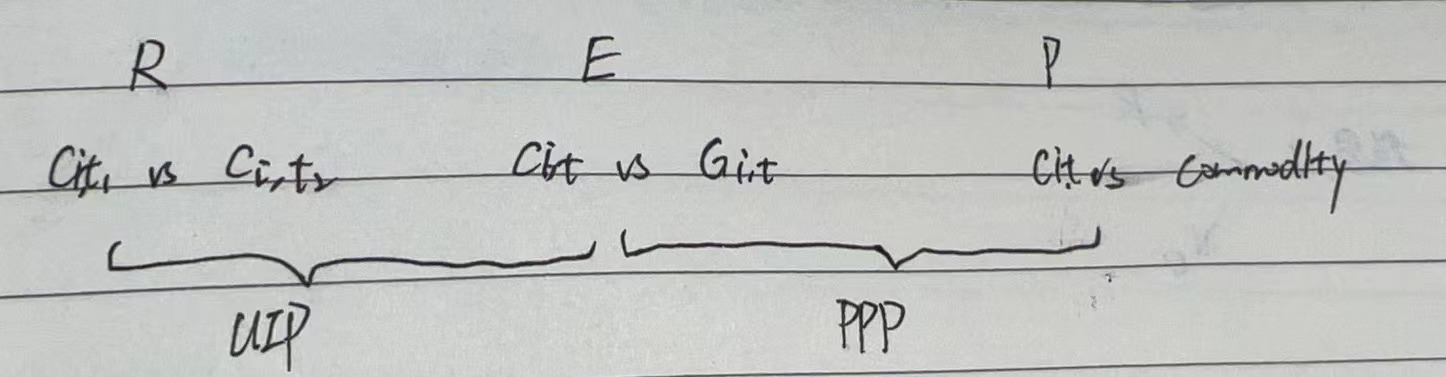 R E P
Cit₁ vs Ci,t₂ Cit vs Gi,t Cit vs commodity
UIP PPP